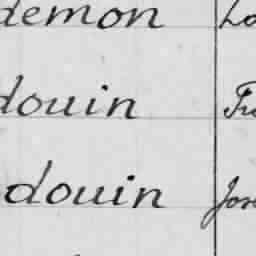 demon Lo
douin Fra
douin Jos